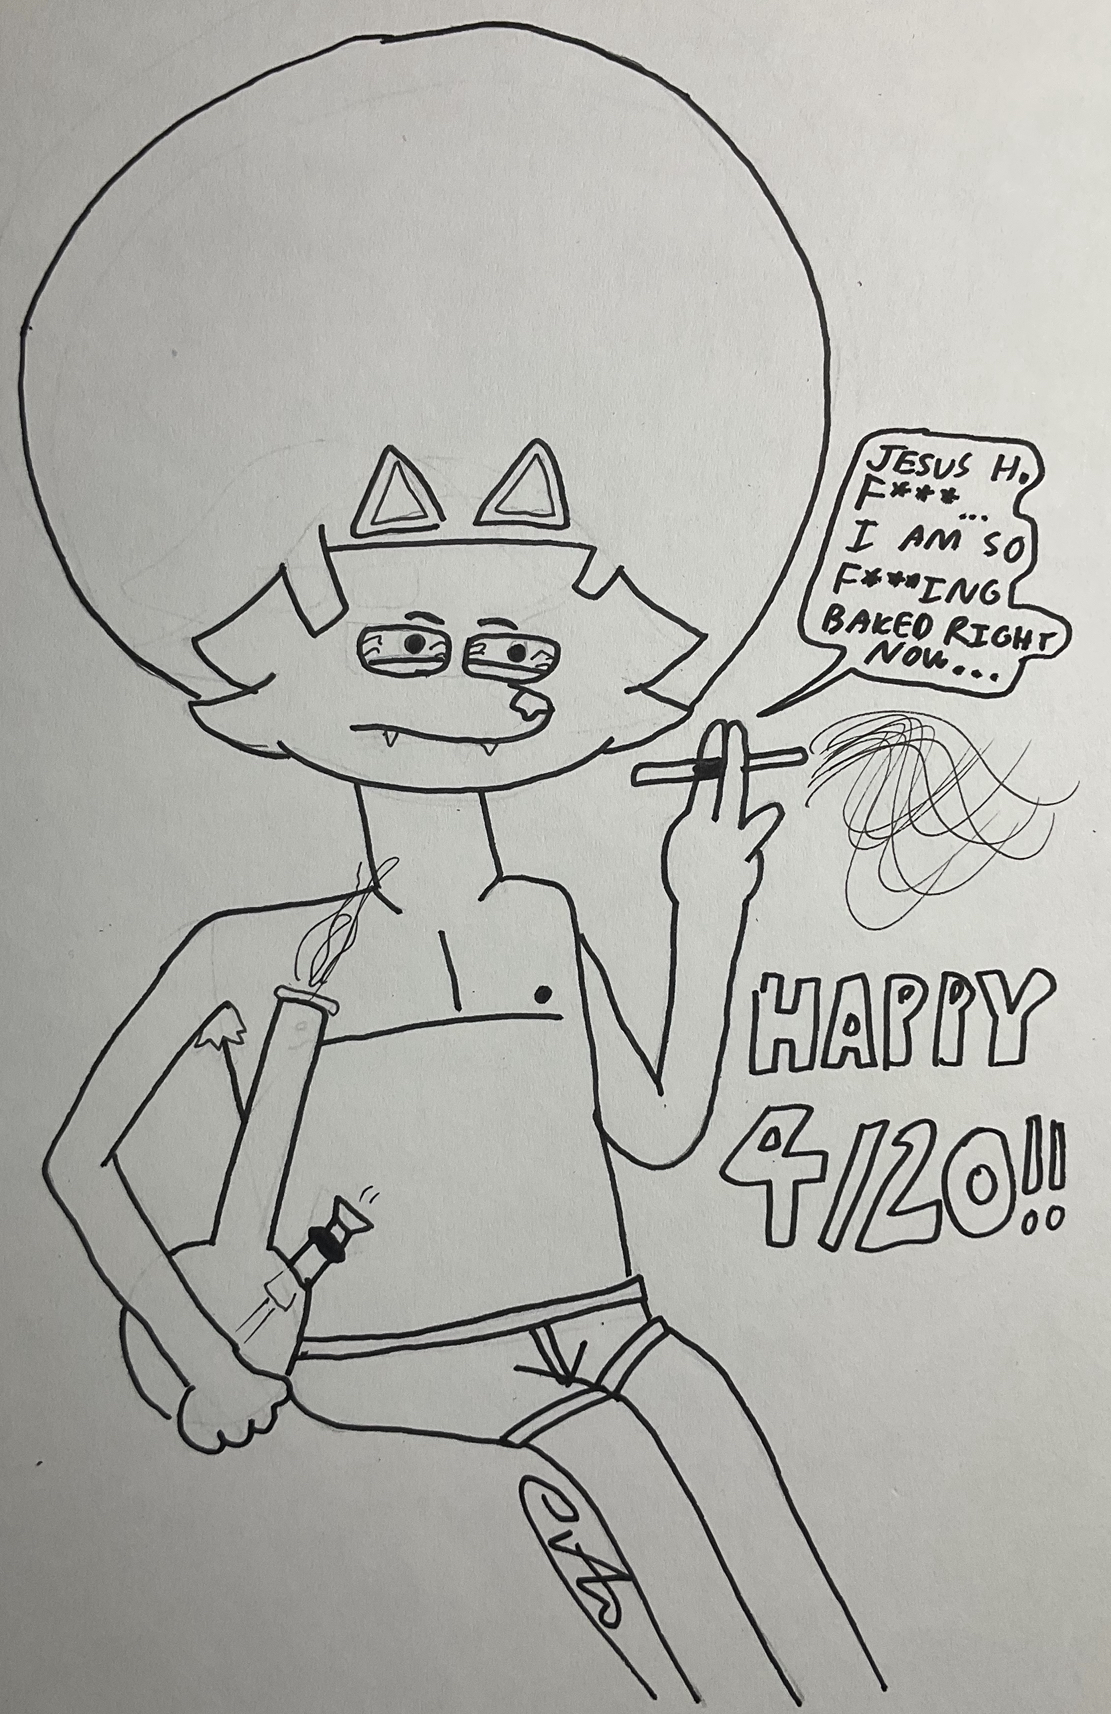 JESUS H.
F***...
I AM SO
F***ING
BAKED RIGHT
NOW...
HAPPY
4/20!!